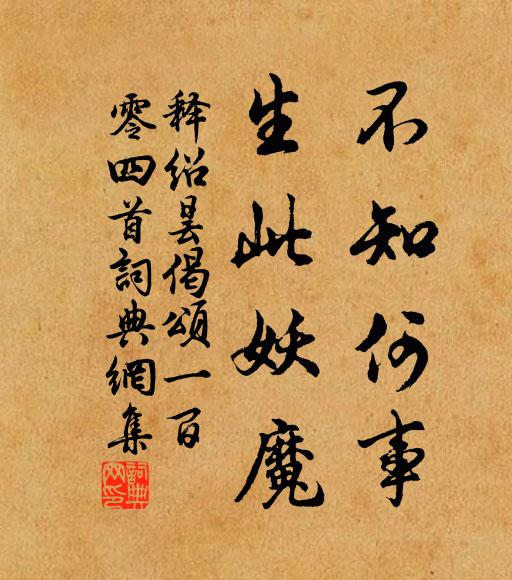 不知何事
生此妖魔
释绍昙偈颂一百
零四首詞典網集
詞典
网印